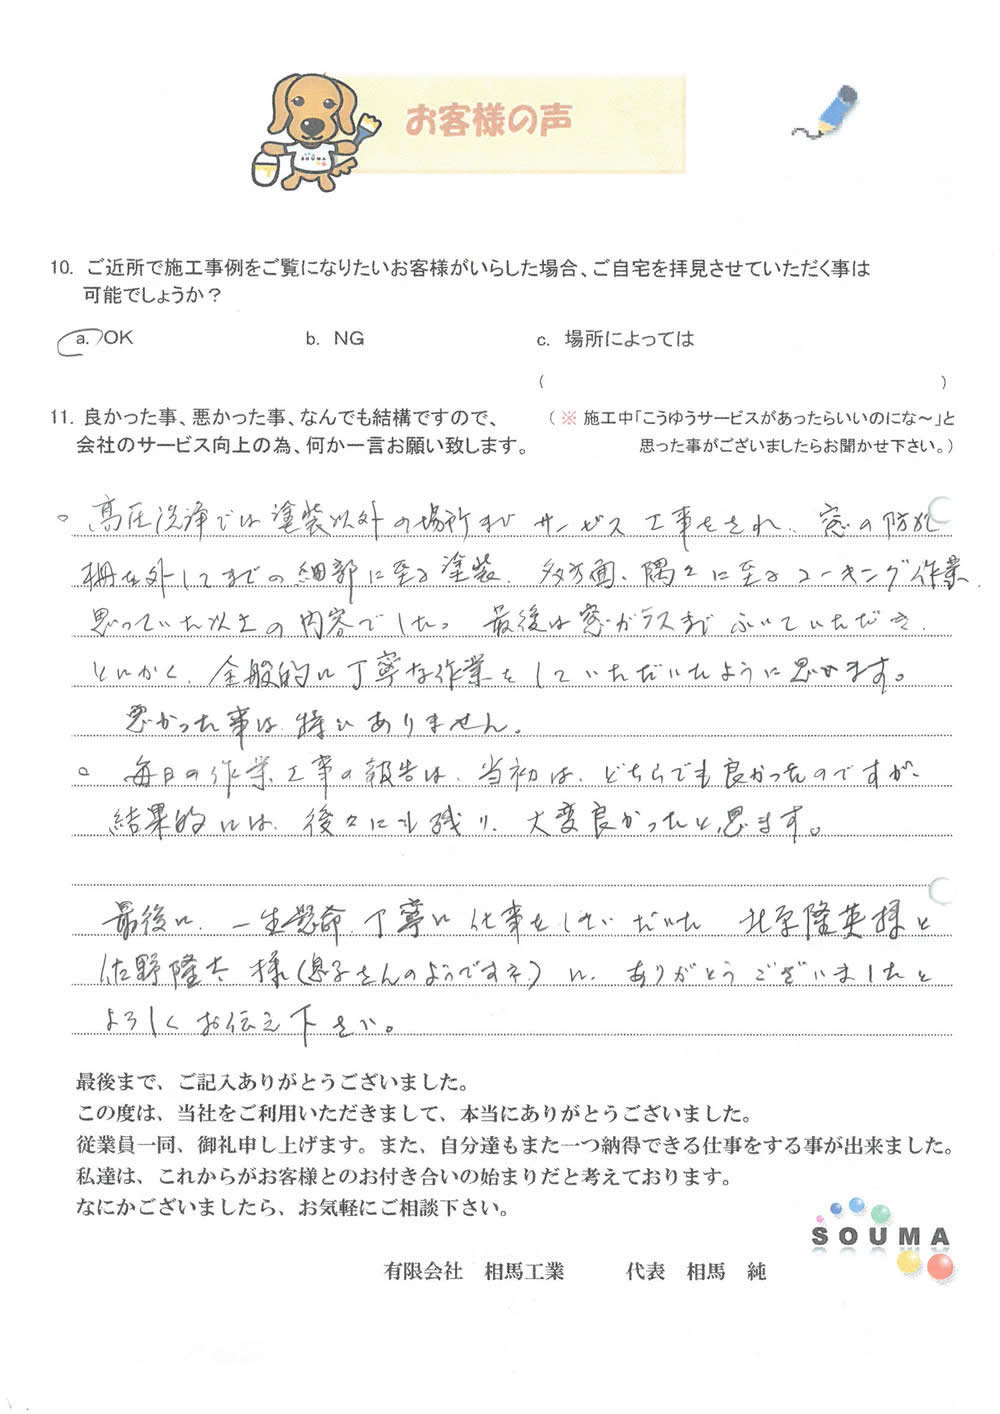 SOUMA
お客様の声
10. ご近所で施工事例をご覧になりたいお客様がいらした場合、ご自宅を拝見させていただく事は
可能でしょうか？
a. OK b. NG c. 場所によっては
( )
11. 良かった事、悪かった事、なんでも結構ですので、 （※ 施工中「こうゆうサービスがあったらいいのにな～」と
会社のサービス向上の為、何か一言お願い致します。 思った事がございましたらお聞かせ下さい。）
○ 高圧洗浄では塗装以外の場所まで サービス工事をされ、窓の防犯
柵を外してまでの細部に至る塗装、多方面、隅々に至るコーキング作業
思っていた以上の内容でした。最後は窓ガラスまでふいていただき、
とにかく、全般的に丁寧な作業をしていただいたように思います。
悪かった事は特にありません。
○ 毎日の作業、工事の報告は、当初は、どちらでも良かったのですが、
結果的には、後々にも残り、大変良かったと思ます。
最後に、一生懸命、丁寧に仕事をしていだいた 北原隆英様と
佐野隆太様（息子さんのようですネ）に、ありがとうございましたと
よろしくお伝え下さい。
最後まで、ご記入ありがとうございました。
この度は、当社をご利用いただきまして、本当にありがとうございました。
従業員一同、御礼申し上げます。また、自分達もまた一つ納得できる仕事をする事が出来ました。
私達は、これからがお客様とのお付き合いの始まりだと考えております。
なにかございましたら、お気軽にご相談下さい。
SOUMA
有限会社 相馬工業 代表 相馬 純